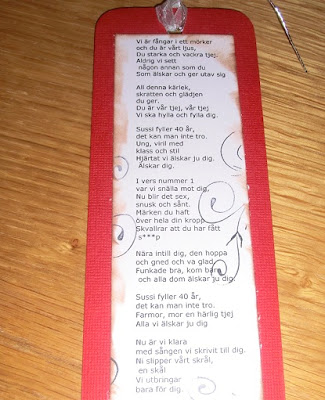 Vi är fångar i ett mörker
och du är vårt ljus,
Du starka och vackra tjej.
Aldrig vi sett
någon annan som du
Som älskar och ger utav sig
All denna kärlek,
skratten och glädjen
du ger.
Du är vår tjej, vår tjej
Vi ska hylla och fylla dig.
Sussi fyller 40 år,
det kan man inte tro.
Ung, viril med
klass och stil
Hjärtat vi älskar ju dig.
Älskar dig.
I vers nummer 1
var vi snälla mot dig,
Nu blir det sex,
snusk och sånt.
Märken du haft
över hela din kropp
Skvallrar att du har fått
s***p
Nära intill dig, den hoppa
och gned och va glad,
Funkade bra, kom bara
och alla dom älskar ju dig.
Sussi fyller 40 år,
det kan man inte tro.
Farmor, mor en härlig tjej
Alla vi älskar ju dig
Nu är vi klara
med sången vi skrivit till dig.
Ni slipper vårt skrål,
en skål
Vi utbringar
bara för dig.